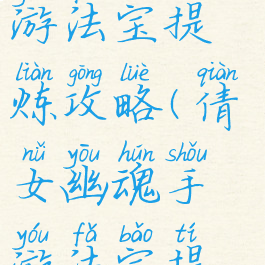 游法宝提
liàn gōng lüè qiàn
炼攻略(倩
nǚ yōu hún shǒu
女幽魂手
yóu fǎ bǎo tí
游法宝提